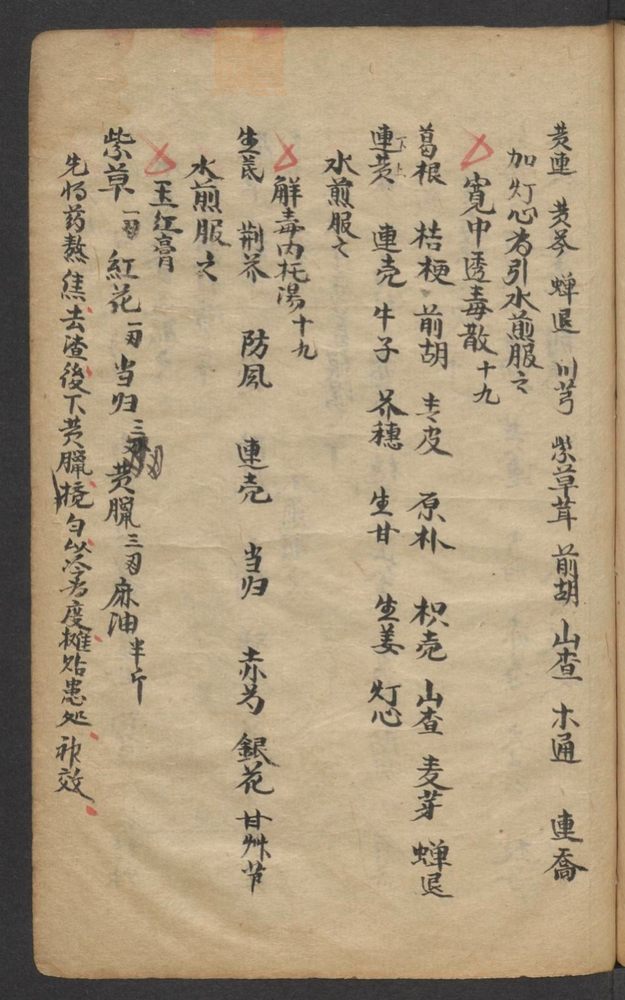 黄連 黄芩 蟬退 川芎 紫草茸 前胡 山查 木通 連喬
加灯心为引水煎服之
寬中透毒散十九
葛根 桔梗 前胡 青皮 原朴 枳壳 山查 麦芽 蟬退
連黄 下上 連壳 牛子 芥穗 生甘 生姜 灯心
水煎服之
解毒内托湯十九
生芪 荆芥 防风 連壳 当归 赤芍 銀花 甘艸节
水煎服之
玉红膏
紫草一刄 紅花一刄 当归三刄 黄臘三刄 麻油半斤
先将药熬焦去渣後下黄臘搅匀以冷为度摊贴患处神效